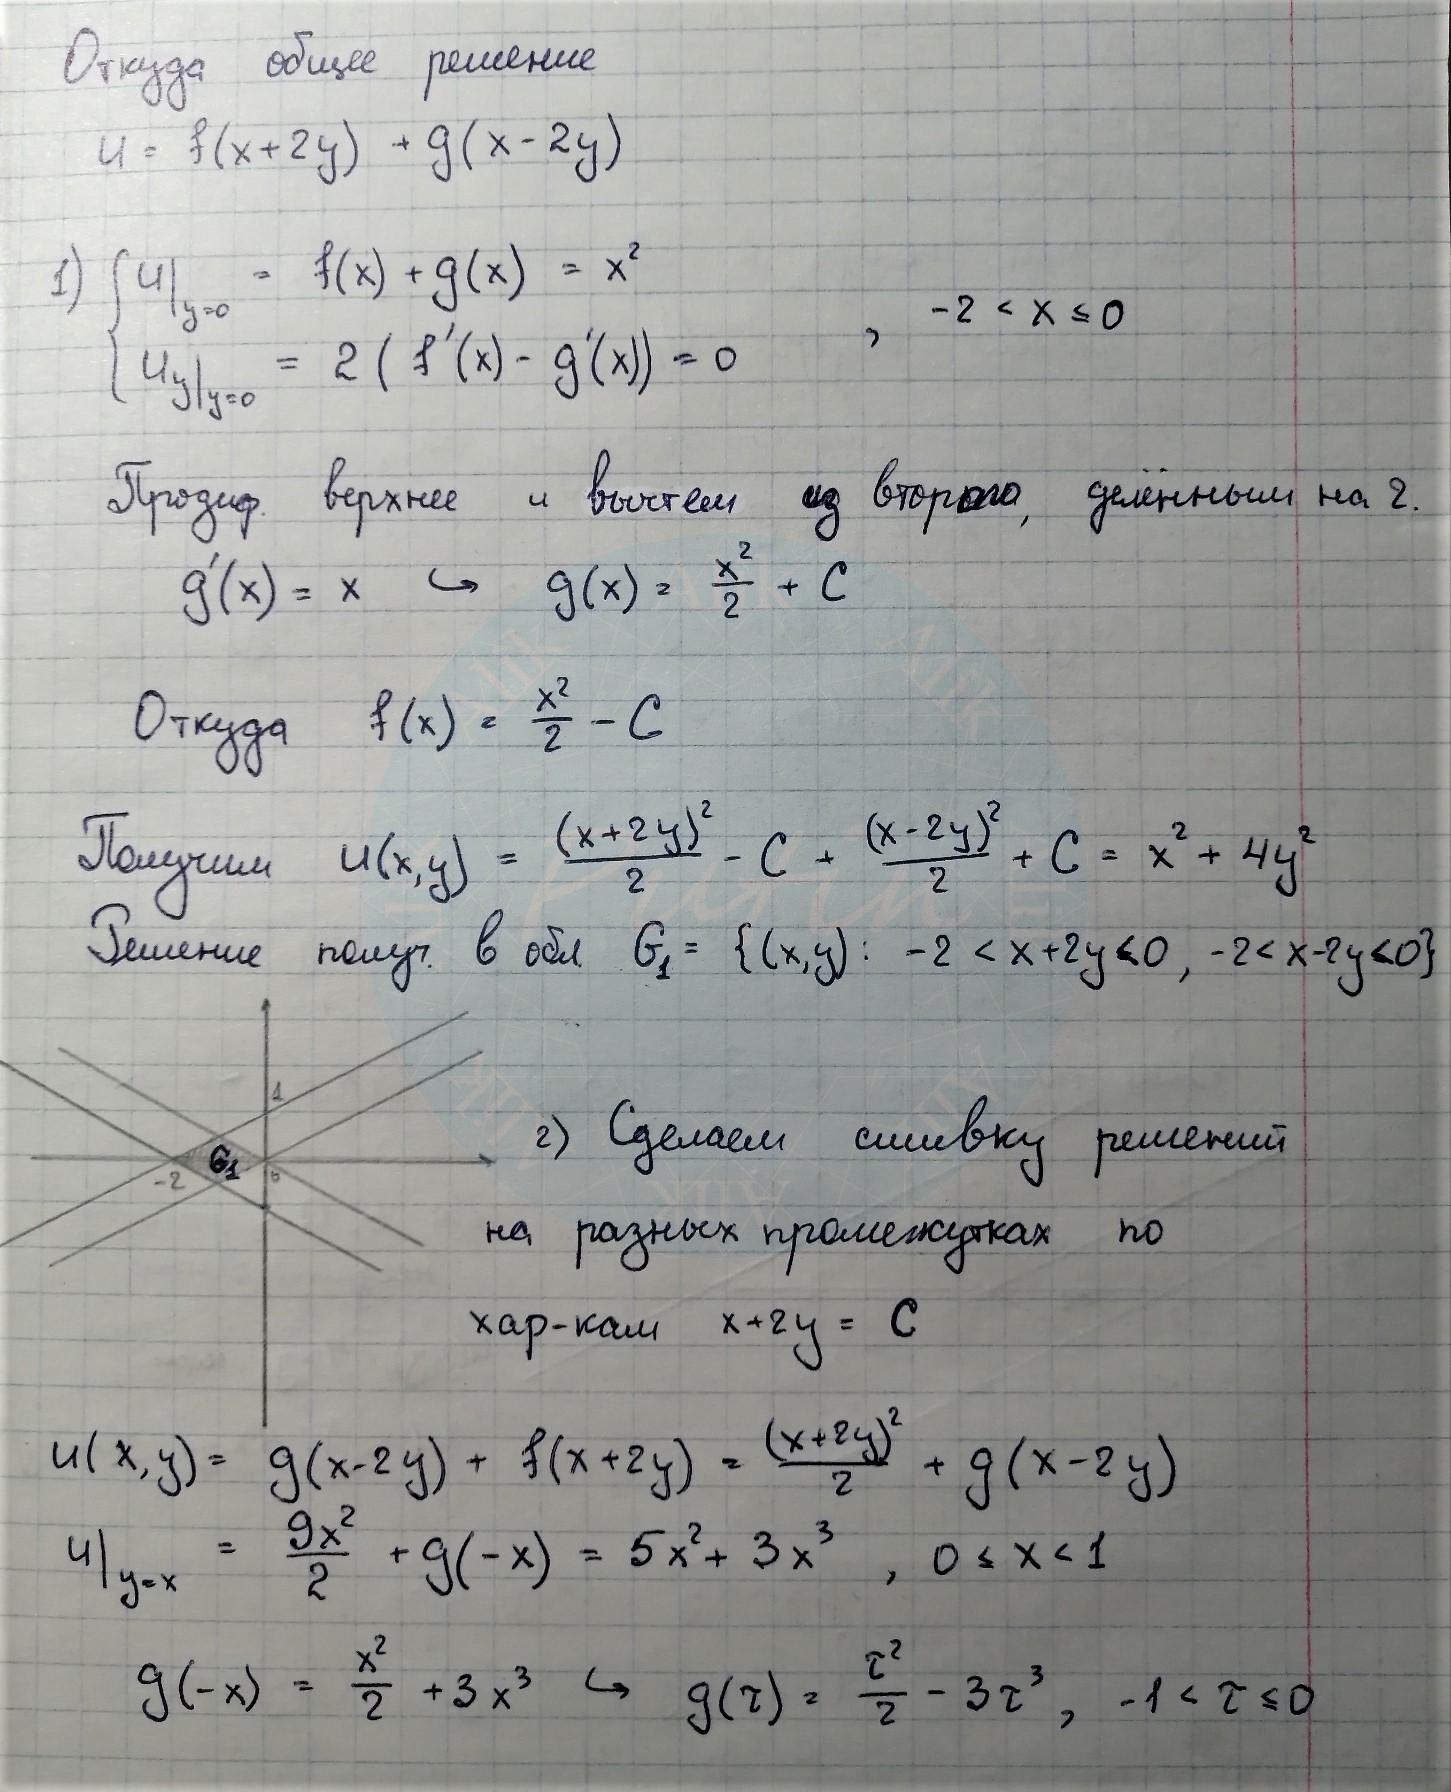 Откуда общее решение
u = f(x+2y) + g(x-2y)
1) { u|_{y=0} = f(x) + g(x) = x²
u_y|_{y=0} = 2(f'(x) - g'(x)) = 0 , -2 < x ≤ 0
Продиф. верхнее и вычтем из второго, делённым на 2.
g'(x) = x ↪ g(x) = x²/2 + C
Откуда f(x) = x²/2 - C
Получим u(x,y) = (x+2y)²/2 - C + (x-2y)²/2 + C = x² + 4y²
Решение получ. в обл G₁ = {(x,y): -2 < x+2y ≤ 0, -2 < x-2y ≤ 0}
1
G₁
-2
0
2) Сделаем сшивку решений
на разных промежутках по
хар-кам x+2y = C
u(x,y) = g(x-2y) + f(x+2y) = (x+2y)²/2 + g(x-2y)
u|_{y=x} = 9x²/2 + g(-x) = 5x² + 3x³ , 0 ≤ x < 1
g(-x) = x²/2 + 3x³ ↪ g(τ) = τ²/2 - 3τ³, -1 < τ ≤ 0